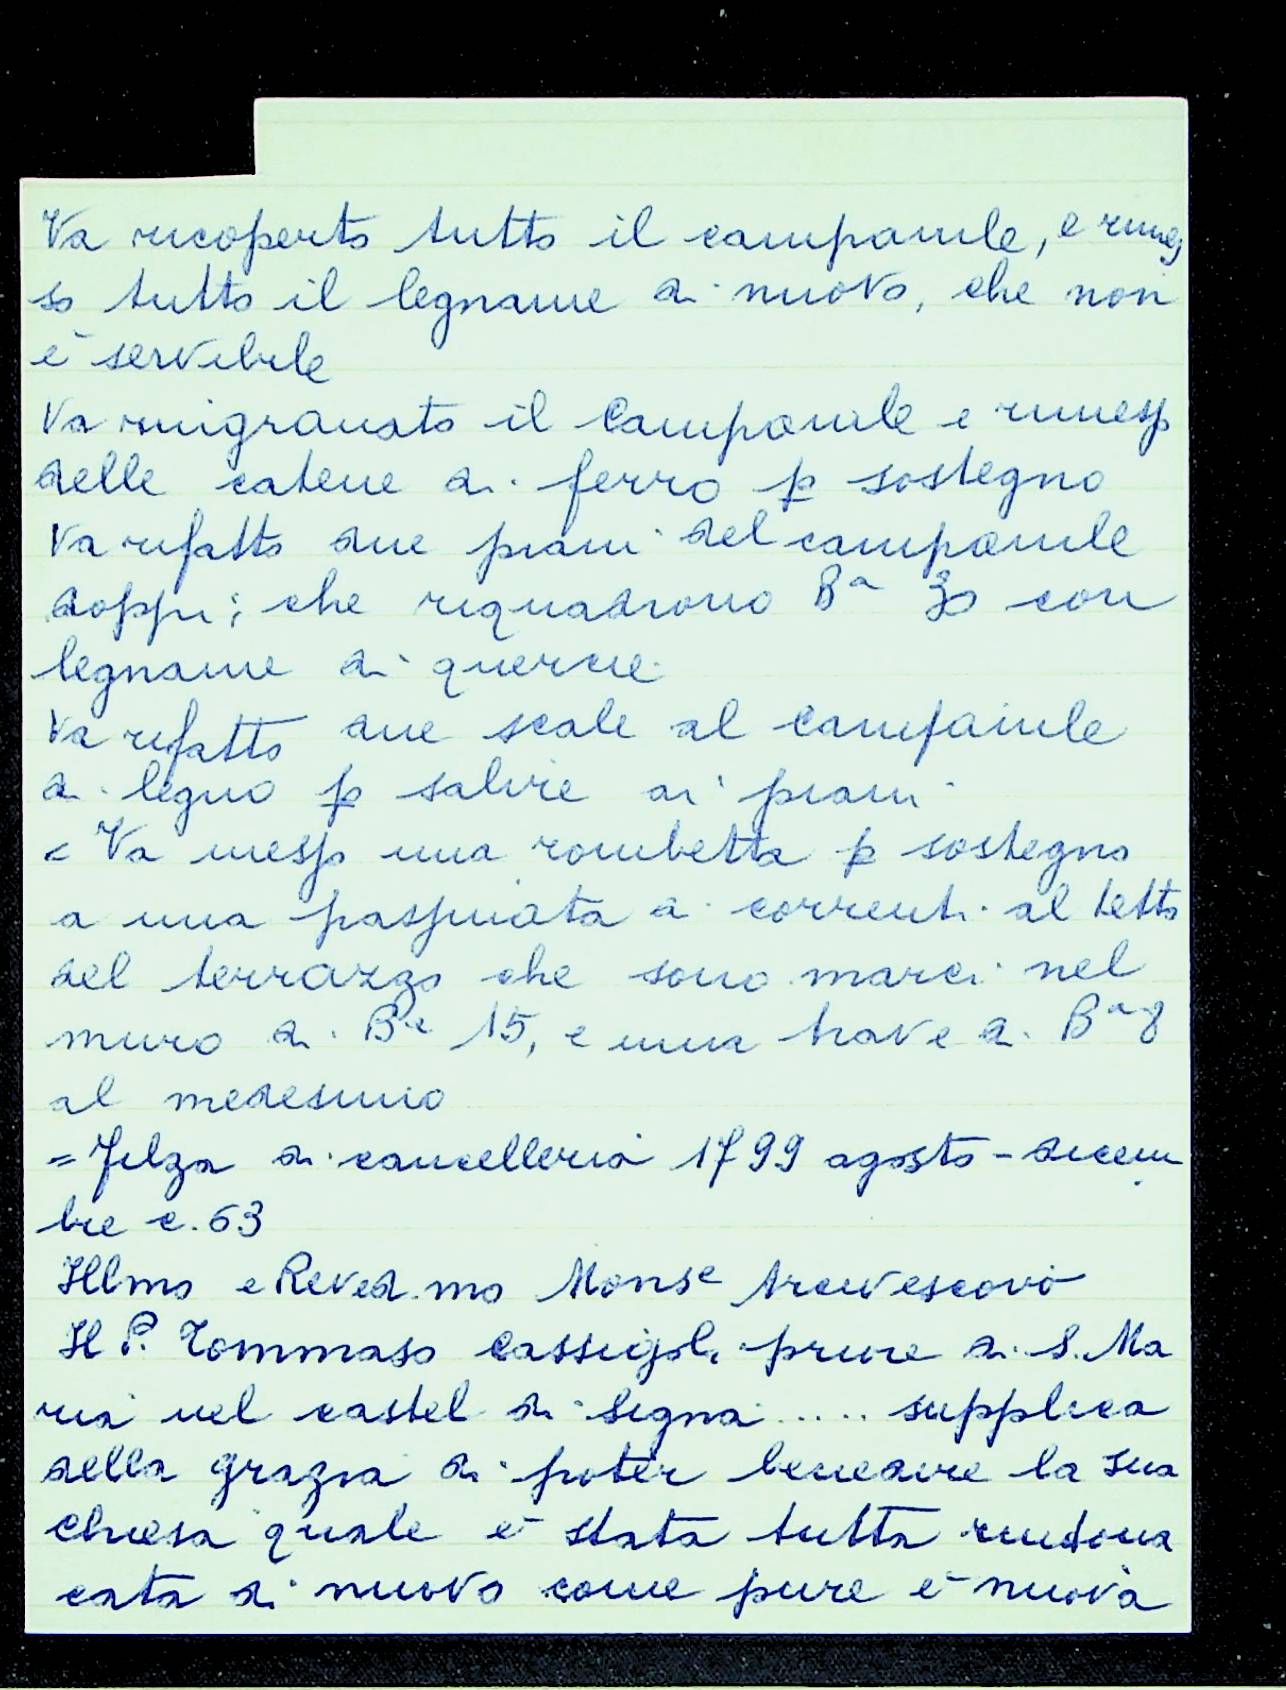 Va ricoperto tutto il campanile, e rimes
so tutto il legname di nuovo, che non
è servibile
Va rinigranato il Campanile e rimesso
delle catene di ferro p sostegno
Va rifatto due piani del campanile
doppi; che riquadrono Bª 30 con
legname di quercie
Va rifatto due scale al campanile
di legno p salire ai piani
= Va messo una rombetta p sostegno
a una passinata di correnti al tetto
del terrazzo che sono marci nel
muro di Bª 15, e una trave di Bª 8
al medesimo
= Filza di cancelleria 1799 agosto - dicem
bre c. 63
Illmo e Reved.mo Monse Arcivescovo
Il P. Tommaso Cassigoli priore di S. Ma
ria nel castel di Signa ..... supplica
della grazia di poter benedire la sua
chiesa quale è stata tutta rintona
cata di nuovo come pure è nuova